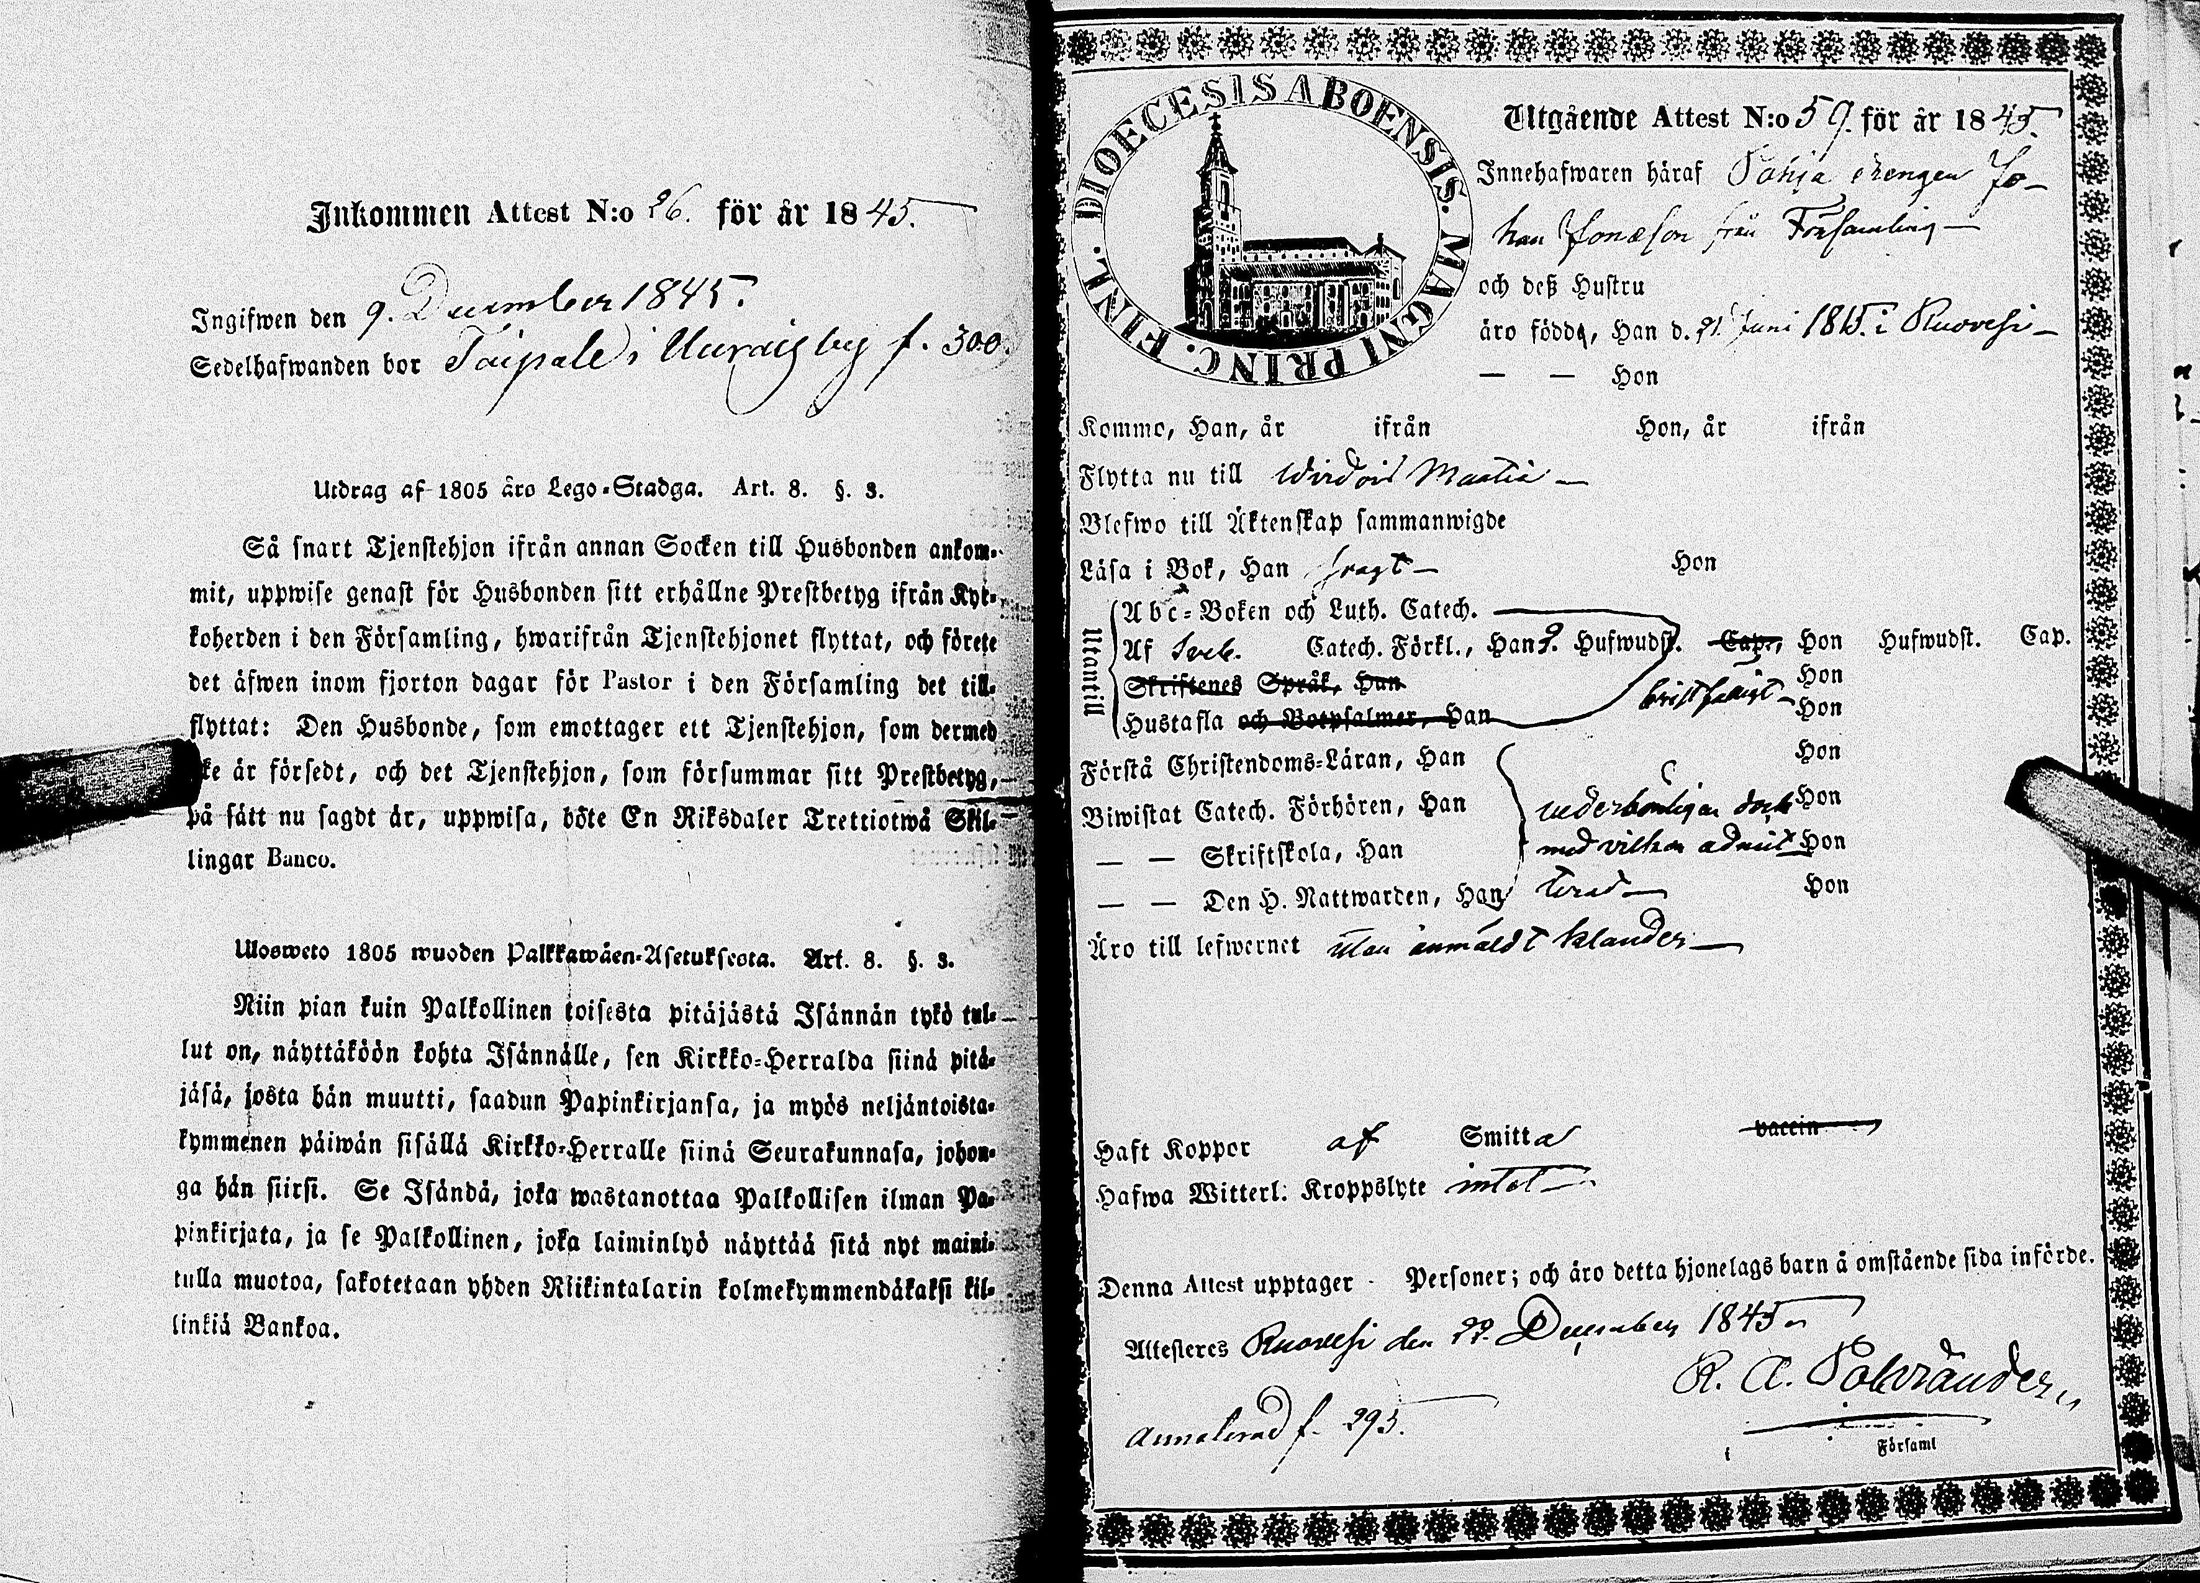 Inkommen Attest N:o 26. för år 1845.
Ingifwen den 9. December 1845.
Sedelhafwanden bor Taipale i by f. 300.
Utdrag af 1805 års Lego-Stadga. Art. 8. §. 3.
Så snart Tjenstehjon ifrån annan Socken till Husbonden ankom-
mit, uppwise genast för Husbonden sitt erhållne Prestbetyg ifrån Kyr-
koherden i den Församling, hwarifrån Tjenstehjonet flyttat, och förete
det äfwen inom fjorton dagar för Pastor i den Församling det till-
flyttat: Den Husbonde, som emottager ett Tjenstehjon, som dermed
ke är försedt, och det Tjenstehjon, som försummar sitt Prestbetyg,
på sätt nu sagdt är, uppwisa, böte En Riksdaler Trettiotwå Skil-
lingar Banco.
Ulosweto 1805 wuoden Palkkawäen-Asetuksesta. Art. 8. §. 3.
Niin pian kuin Palkollinen toisesta pitäjästä Isännän tykö tul-
lut on, näyttäköön kohta Isännälle, sen Kirkko-Herralda siinä pitä-
jäsä, josta hän muutti, saadun Papinkirjansa, ja myös neljäntoista-
kymmenen päiwän sisällä Kirkko-Herralle siinä Seurakunnasa, johon-
ga hän siirsi. Se Isändä, joka wastanottaa Palkollisen ilman Pa-
pinkirjata, ja se Palkollinen, joka laiminlyö näyttää sitä nyt maini-
tulla muotoa, sakotetaan yhden Riikintalarin kolmekymmendäkaksi kil-
linkiä Bankoa.
FINL. DIOECESIS ABOENSIS. MAGNI PRINC.
Utgående Attest N:o 59. för år 1845.
Innehafwaren häraf Pohja drengen Jo-
han Jonæson från Församling
och deß Hustru
äro födde, Han d. 21. Juni 1815. i Ruovesi
— — Hon
Kommo, Han, år ifrån Hon, år ifrån
Flytta nu till Wirdois
Blefwo till Äktenskap sammanwigde
Läsa i Bok, Han svagt Hon
Utantill
Abc-Boken och Luth. Catech.
Af Sveb. Catech. Förkl., Han 2. Hufwudst. Cap., Hon Hufwudst. Cap.
Skriftenes Språk, Han Hon
Hustafla och Botpsalmer, Han bristfälligt Hon
Förstå Christendoms-Läran, Han Hon
Biwistat Catech. Förhören, Han vederbörligen dock Hon
— — Skriftskola, Han med vilkor admit- Hon
— — Den H. Nattwarden, Han terad Hon
Äro till lefwernet utan anmäldt klander
Haft Koppor af Smitta vaccin
Hafwa Witterl: Kroppslyte intet
Denna Attest upptager Personer; och äro detta hjonelags barn å omstående sida införde.
Attesteres Ruovesi den 22. December 1845
R. A. Polviander
Annoterad f. 295.
Församl